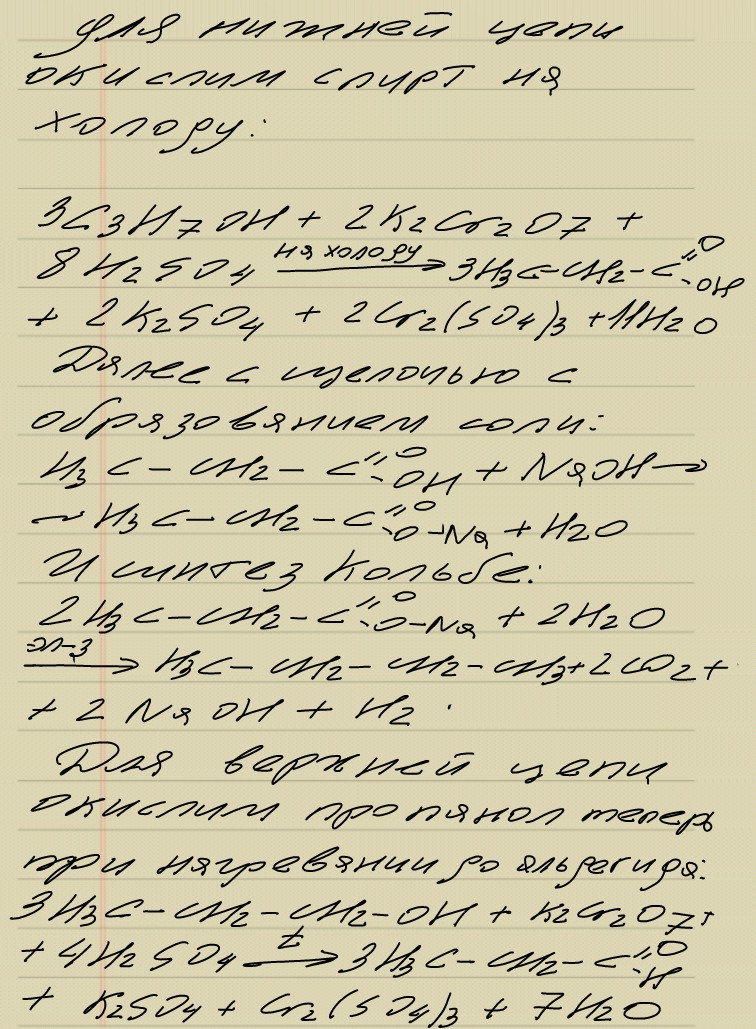 Для нижней цепи
окислим спирт на
холоду:
3C3H7OH + 2K2Cr2O7 +
8H2SO4 на холоду → 3H3C-CH2-C=O-OH
+ 2K2SO4 + 2Cr2(SO4)3 + 11H2O
Далее с щелочью с
образованием соли:
H3C-CH2-C=O-OH + NaOH →
→ H3C-CH2-C=O-O-Na + H2O
И синтез Кольбе:
2H3C-CH2-C=O-O-Na + 2H2O
эл-з → H3C-CH2-CH2-CH3 + 2CO2 +
+ 2NaOH + H2.
Для верхней цепи
окислим пропанол теперь
при нагревании до альдегида:
3H3C-CH2-CH2-OH + K2Cr2O7 +
+ 4H2SO4 t → 3H3C-CH2-C=O-H
+ K2SO4 + Cr2(SO4)3 + 7H2O